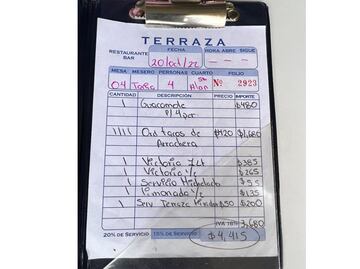 TERRAZA
RESTAURANTE BAR FECHA HORA ABRE SIGUE
20/oct/22 - - -
MESA MESERO PERSONAS CUARTO FOLIO
04 4 Nº 2923
CANTIDAD DESCRIPCIÓN PRECIO IMPORTE
1 Guacamole $480
p/4 per.
1111 Ord tacos de $420 $1,680
Arrachera
1 Victoria $385
1 Victoria $265
1 Servicio Michelada $55
1 Limonada $135
1 Serv Terraza $50 $200
IVA 16% 3,680
20% DE SERVICIO 15% DE SERVICIO $4,415